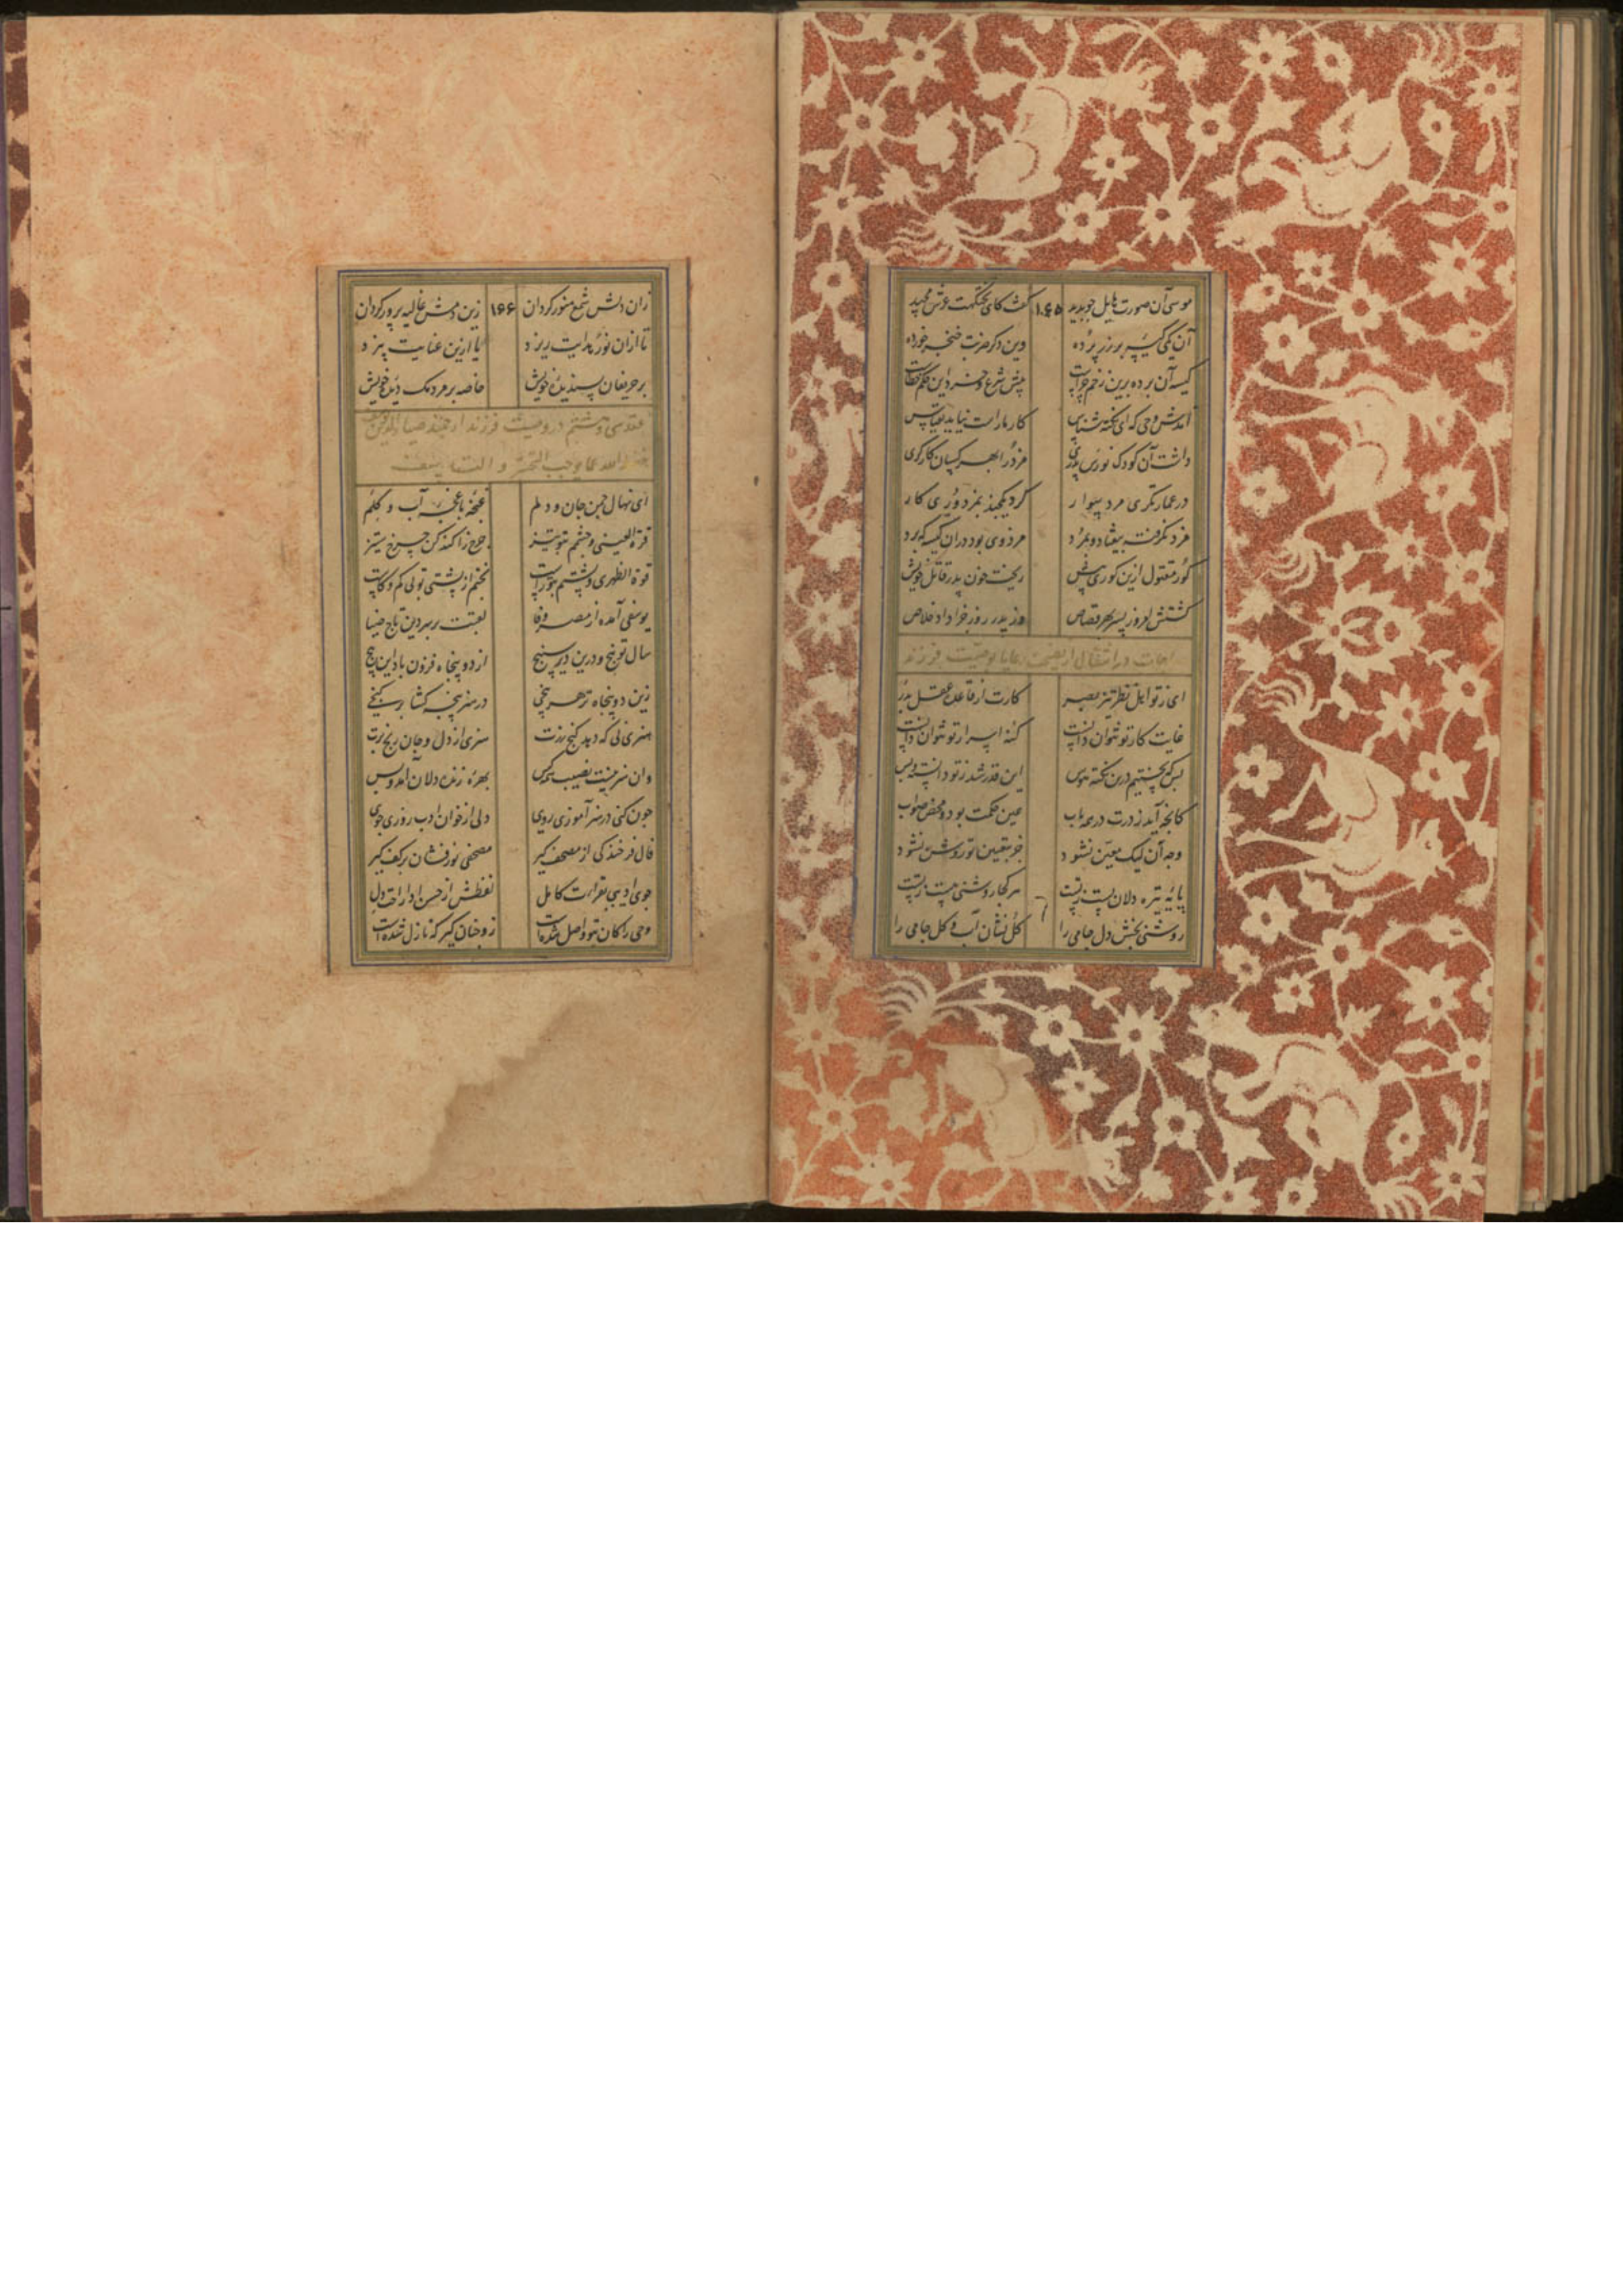 موسی آن صورت هایل چو بدید ۱۶۵ گفت کای تختگهت عرش مجید
آن یکی کیسه پر زر برده وین دگر ضربت خنجر خورده
کیسه آن برده برین زخم چراست پیش شرع و خرد این حکم خطاست
آمدش وحی که ای نکته شناس کار ما راست نیاید بقیاس
داشت آن کودک نورس پدری مزدر ابهر کسان کارگری
در عمارتگری مرد سوار کرد یکچند بمزدوری کار
مزد نگرفته بیفتاد و بمرد مزد وی بود در آن کیسه که برد
کور مقتول ازین کوری پیش ریخت خون پدر قاتل خویش
کشتش امروز پسر بهر قصاص وز پدر روز جزا داد خلاص
مناجات در انتقال از نصیحت رعایا بوصیت فرزند
ای ز تو اهل نظر تیز بصر کارت از قاعده عقل بدر
غایت کار تو نتوان دانست کنه اسرار تو نتوان دانست
بس که جستیم درین نکته نفس این قدر شد ز تو دانسته و بس
کانچه آید ز درت در همه باب عین حکمت بود و محض صواب
وجه آن لیک معین نشود جز بتعیین تو روشن نشود
پایه تیره دلان پست ز تست هر کجا روشنیی هست ز تست
روشنی بخش دل جامی را گل نشان آب و گل جامی را
زان دلش شمع منور گردان ۱۶۶ زین دمش غالیه پرور گردان
تا ازان نور هدایت ریزد یا ازین عنایت بیزد
بر حریفان پسندیده خویش خاصه بر مردمک دیده خویش
عقد سی و هشتم در وصیت فرزند ارجمند ضیاء الدین یوسف
ای نهال چمن جان و دلم غنچه باغچه آب و گلم
قرة العینی و چشم بتو تیز حرز اکند کن چرخ ستیز
قوة الظهری و پشتم بتو راست نخشم از پشتی تو بی کم و کاست
یوسفی آمده از مصر وفا لقبت بر سر دین تاج ضیا
سال تو پنج و درین دیر سپنج از دو پنجاه فزون باد این پنج
زین دو پنجاه ز هر پنجی در هنر پنجه گشا بر گنجی
هنری نی که دهد گنج زرت هنری از دل و جان رنج برت
وان هنر نیست نصیب همه کس بهره زنده دلان آمد و بس
چون کنی در هنر آموزی روی دل از خوان ادب روزی جوی
فال فرخندگی از مصحف گیر مصحفی نور فشان بر کف گیر
جوی ادیبی بقراءت کامل لفظش از حسن ادا راحت دل
وحی را کان بتو واصل شده است زو چنان گیر که نازل شده است